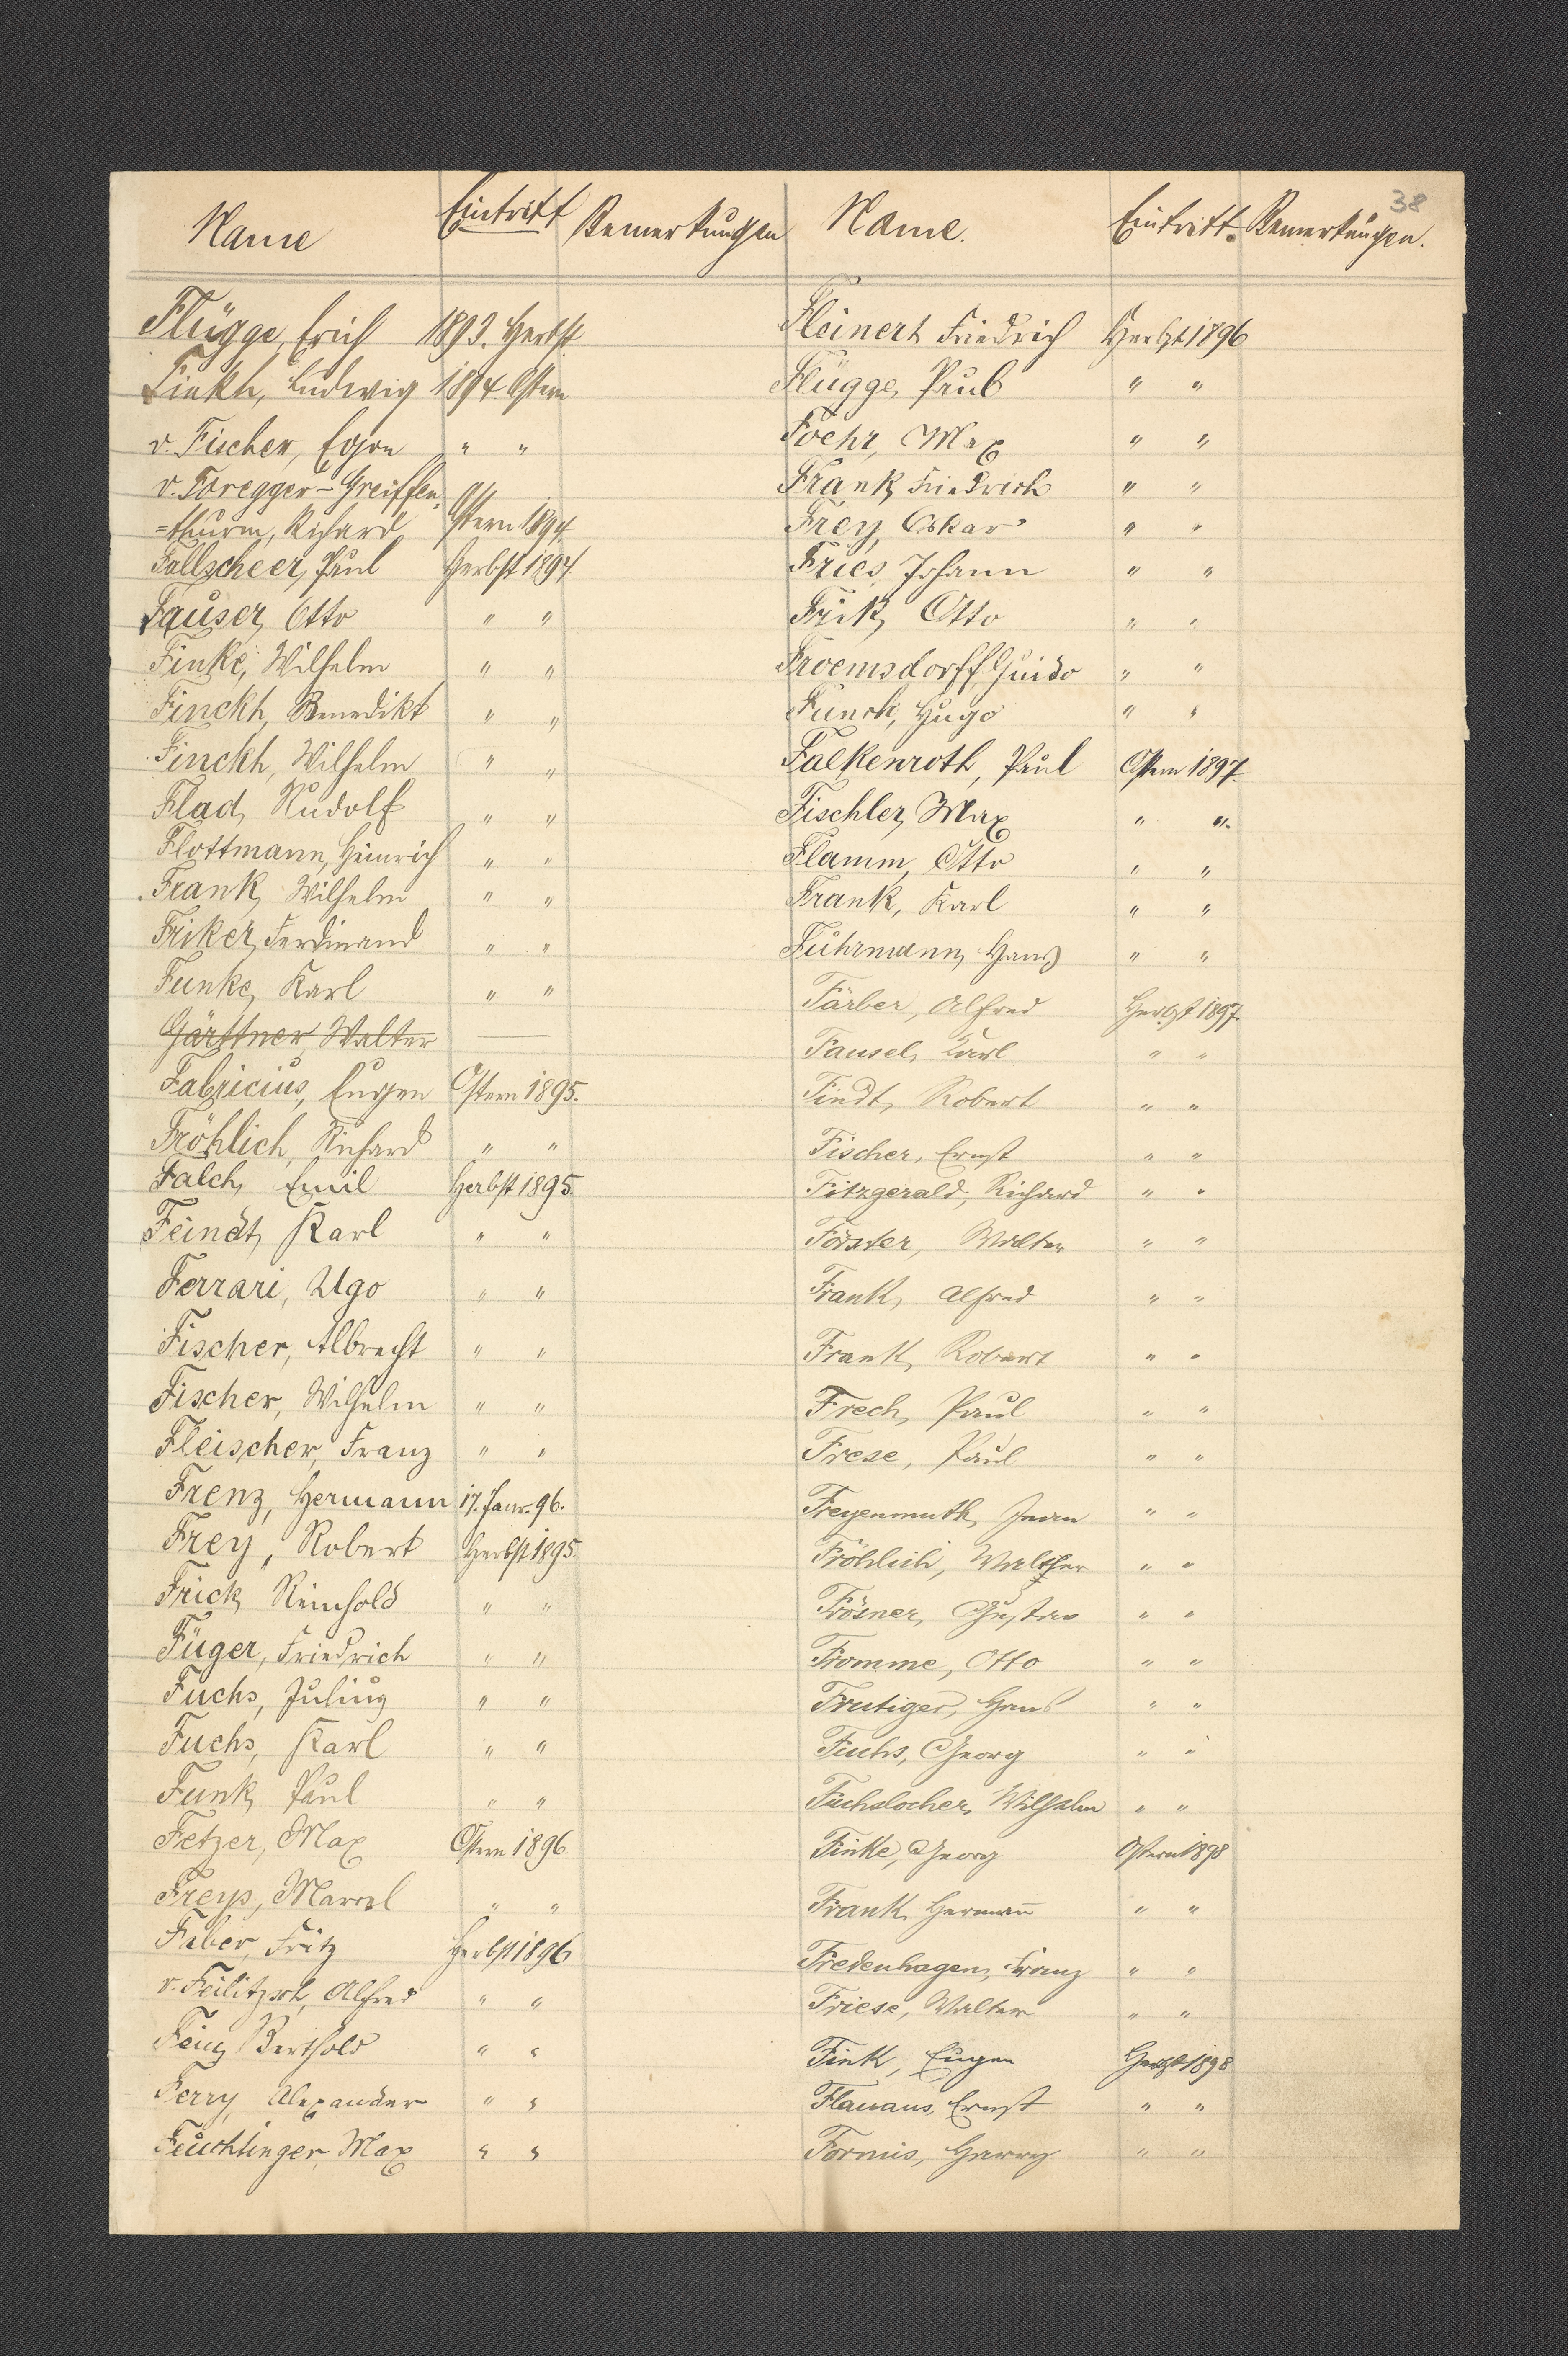 38
Name Eintritt Bemerkungen
Flügge, Erich 1893. Herbst
Finkh, Ludwig 1894 Ostern
v. Fischer, Egon " "
v. Foregger-Greiffen-
=thurm, Richard Ostern 1894.
Fallscheer, Paul Herbst 1894
Fauser, Otto " "
Finke, Wilhelm " "
Finckh, Benedikt " "
Finckh, Wilhelm " "
Flad, Rudolf " "
Flottmann, Heinrich " "
Frank, Wilhelm " "
Friker, Ferdinand " "
Funke, Karl " "
Gärttner, Walter —
Fabricius, Eugen Ostern 1895.
Fröhlich, Richard " "
Falch, Emil Herbst 1895.
Feindt, Karl " "
Ferrari, Ugo " "
Fischer, Albrecht " "
Fischer, Wilhelm " "
Fleischer, Franz " "
Frenz, Hermann 17. Janr. 96.
Frey, Robert Herbst 1895.
Frick, Reinhold " "
Füger, Friedrich " "
Fuchs, Julius " "
Fuchs, Karl " "
Funk, Paul " "
Fetzer, Max Ostern 1896.
Freys, Marcel " "
Faber, Fritz Herbst 1896
v. Feilitzsch, Alfred " "
Berthold " "
Ferry, Alexander " "
Feuchtinger, Max " "
Name. Eintritt. Bemerkungen.
Fleinert, Friedrich Herbst 1896
Flügge, Paul " "
Foehr, Max " "
Frank, Friedrich " "
Frey, Oskar " "
Fries, Johann " "
Frik, Otto " "
Froemsdorff, Guido " "
Funck, Hugo " "
Falkenroth, Paul Ostern 1897.
Fischler, Max " ".
Flamm, Otto " "
Frank, Karl " "
Fuhrmann, Hans " "
Färber, Alfred Herbst 1897.
Fausel, Karl " "
Findt, Robert " "
Fischer, Ernst " "
Fitzgerald, Richard " "
Förster, Walter " "
Frank, Alfred " "
Frank, Robert " "
Frech, Paul " "
Frese, Paul " "
Freyenmuth, " "
Fröhlich, Walther " "
Frösner, Gustav " "
Fromme, Otto " "
Frutiger, Hans " "
Fuchs, Georg " "
Fuchslocher, Wilhelm " "
Finke, Georg Ostern 1898
Frank, Hermann̄ " "
Fredenhagen, Franz " "
Friese, Walter " "
Fink, Eugen Herbst 1898
Flauaus, Ernst " "
Formis, Harry " "